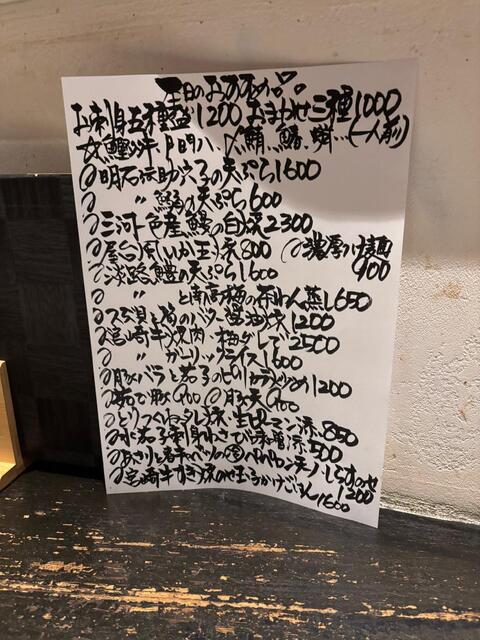 本日のおすすめ品
お刺身五種盛り1200 おまかせ三種1000
〆鯖、鰆、蛸…(一人前)
明石伝助穴子の天ぷら1600
〃 天ぷら600
三河一色産鰻の白焼2300
屋台原(山玉)焼800 濃厚つけ麺900
淡路鱧の天ぷら1600
〃 と南高梅の茶わん蒸し650
つぶ貝と のバター醤油焼1200
宮崎牛焼肉 梅ダレで2500
〃 ガーリックライス1600
豚バラと茄子のピリカラ炒め1200
茹で豚900 豚天900
とりつくねタレ焼 生ピーマン添850
水茄子刺身わさび味噌添500
あさりと春キャベツの ペペロンチーノしらすのせ1200
宮崎牛すき焼のせ玉子かけごはん1600